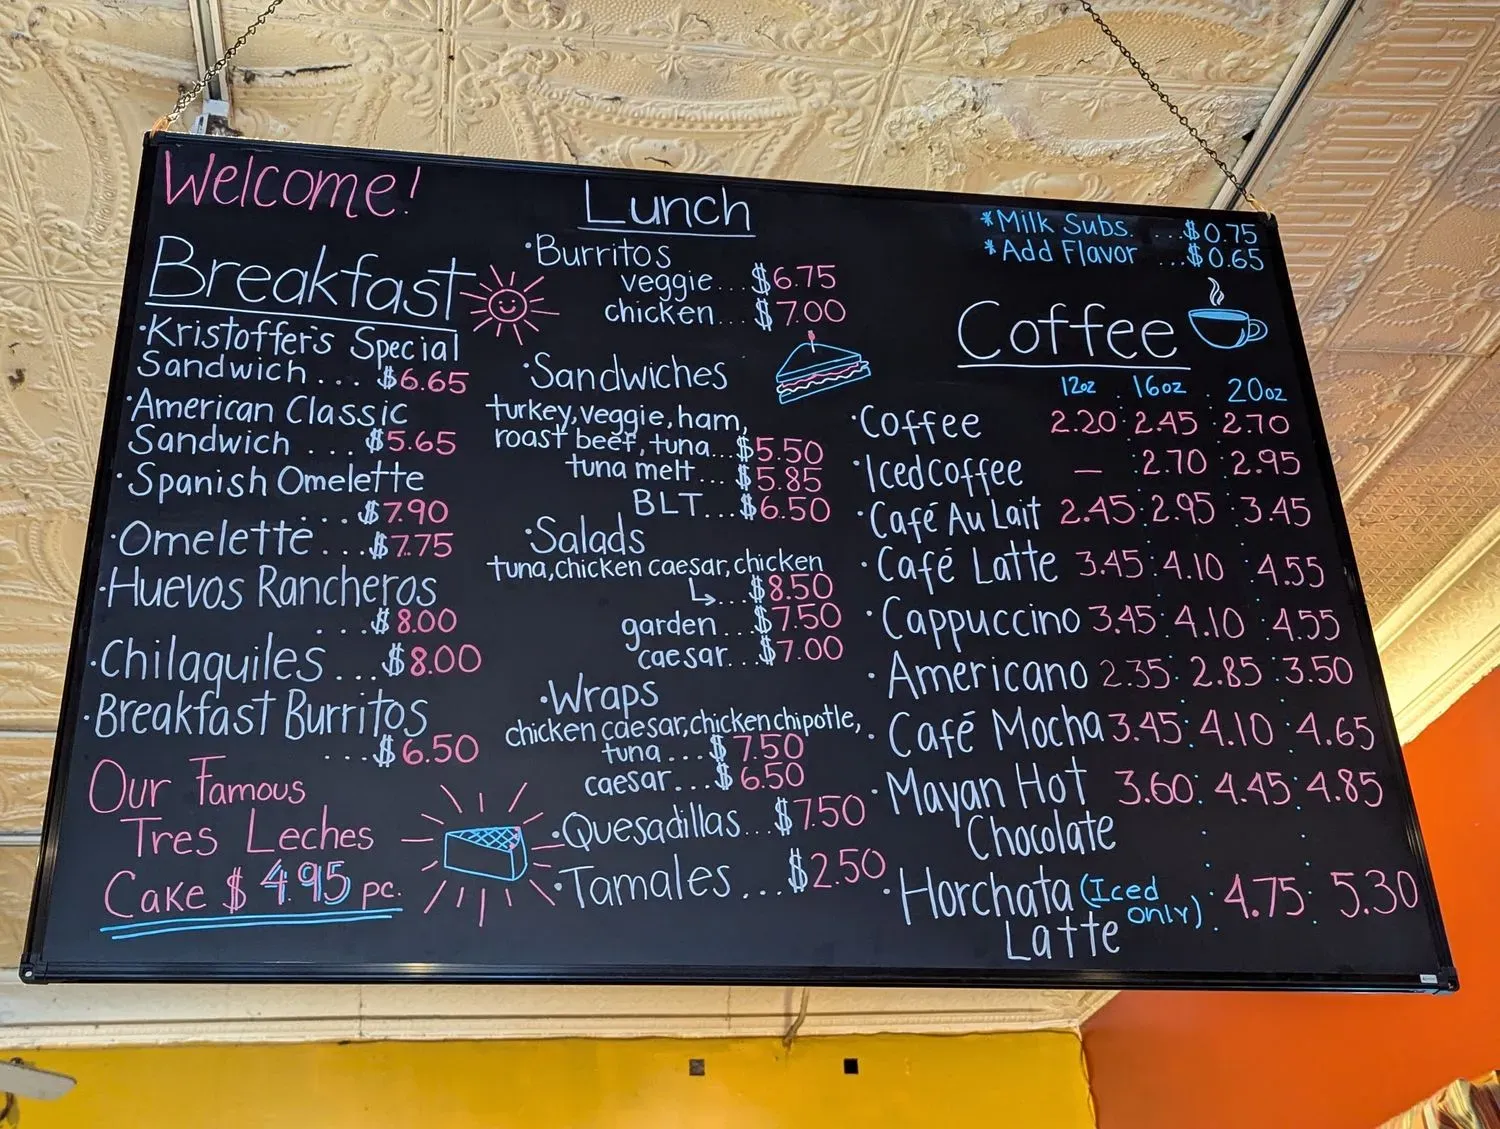 Welcome!
Breakfast
·Kristoffer's Special
Sandwich ... $6.65
·American Classic
Sandwich ... $5.65
·Spanish Omelette
... $7.90
·Omelette ... $7.75
·Huevos Rancheros
... $8.00
·Chilaquiles ... $8.00
·Breakfast Burritos
... $6.50
Our Famous
Tres Leches
Cake $4.95 pc.
Lunch
·Burritos
veggie... $6.75
chicken... $7.00
·Sandwiches
turkey, veggie, ham,
roast beef, tuna... $5.50
tuna melt... $5.85
BLT... $6.50
·Salads
tuna, chicken caesar, chicken
↳... $8.50
garden... $7.50
caesar... $7.00
·Wraps
chicken caesar, chicken chipotle,
tuna... $7.50
caesar... $6.50
·Quesadillas... $7.50
·Tamales... $2.50
*Milk Subs. ...$0.75
*Add Flavor ...$0.65
Coffee
12oz 16oz 20oz
·Coffee 2.20 2.45 2.70
·Iced Coffee — 2.70 2.95
·Café Au Lait 2.45 2.95 3.45
·Café Latte 3.45 4.10 4.55
·Cappuccino 3.45 4.10 4.55
·Americano 2.35 2.85 3.50
·Café Mocha 3.45 4.10 4.65
·Mayan Hot 3.60 4.45 4.85
Chocolate
·Horchata (Iced only) 4.75 5.30
Latte